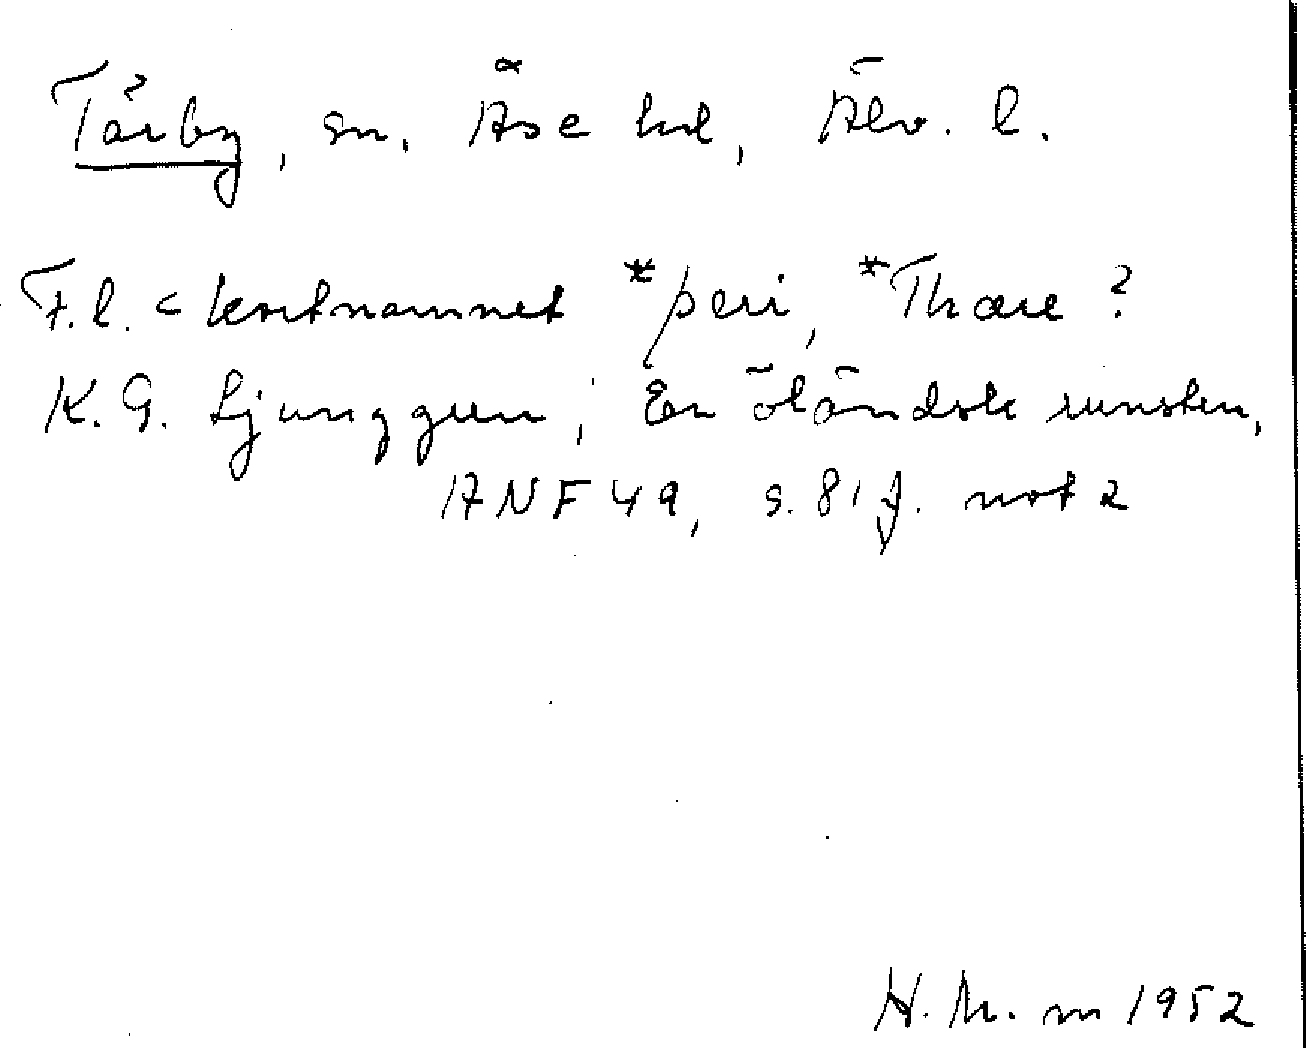 Tärby, sn. Åse hd, Älv. l.
F.l. < kortnamnet *þeri, *Thære ?
K. G. Ljunggren, En öländsk runsten,
ANF 49, s. 81 f. not 2
H. M. m 1952